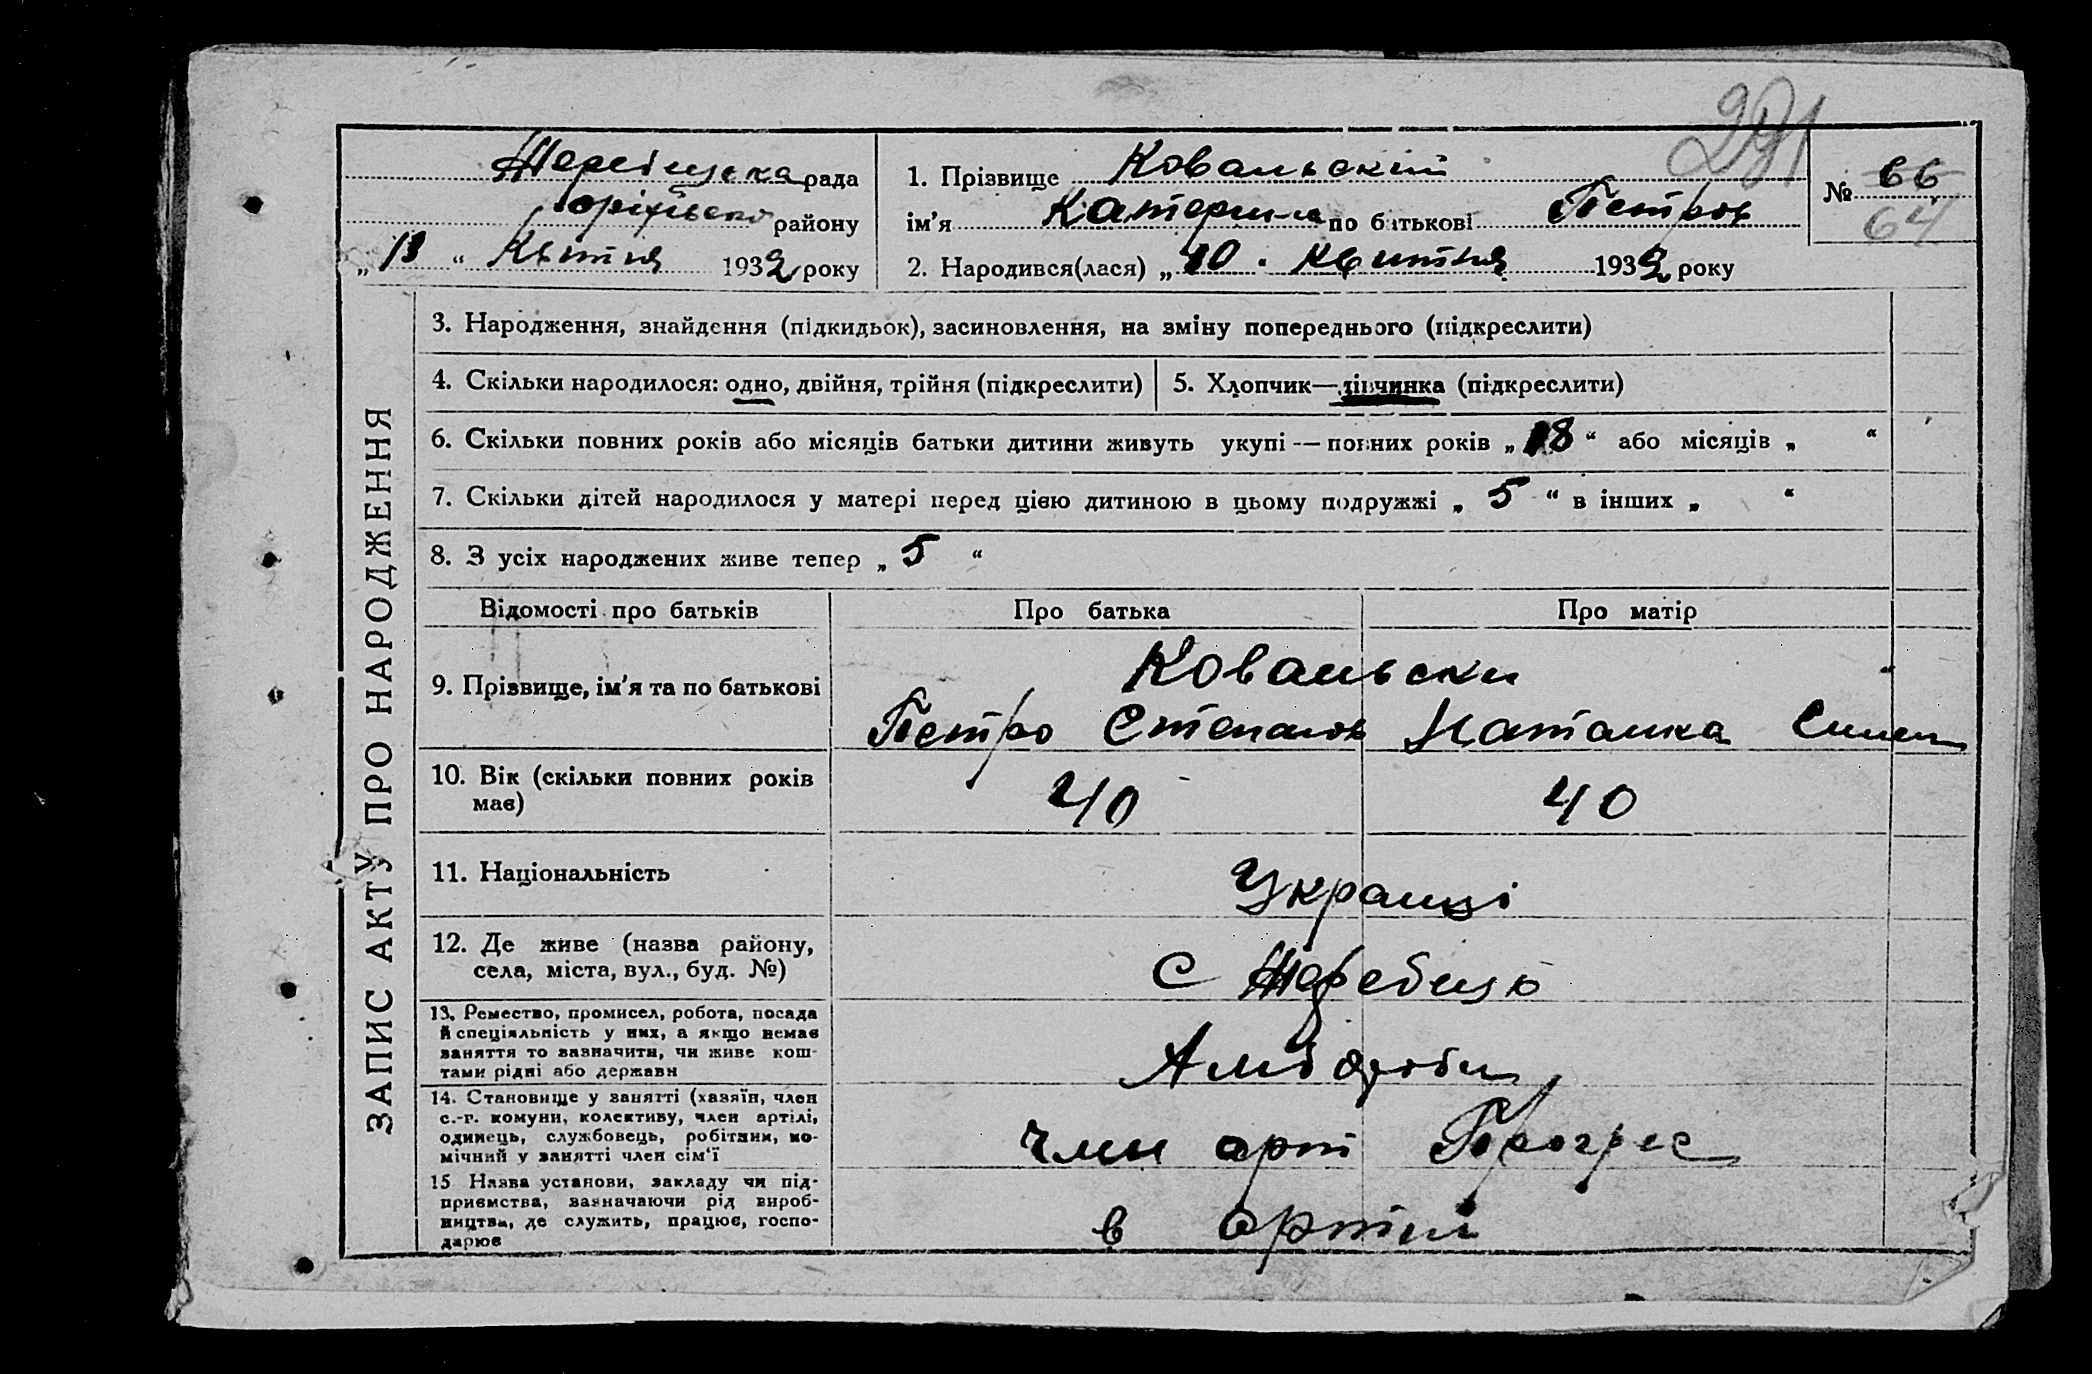 291
Жеребецька рада
Оріхівсько району
„13“ Квітня 1932 року
1. Прізвище Ковальскій
ім’я Катерина по батькові Петров
2. Народився(лася) „10. Квитня 1932 року
№ 66
64
ЗАПИС АКТУ ПРО НАРОДЖЕННЯ
3. Народження, знайдення (підкидьок), засиновлення, на зміну попереднього (підкреслити)
4. Скільки народилося: одно, двійня, трійня (підкреслити)
5. Хлопчик—дівчинка (підкреслити)
6. Скільки повних років або місяців батьки дитини живуть укупі — повних років „18“ або місяців „ “
7. Скільки дітей народилося у матері перед цією дитиною в цьому подружжі „5“ в інших „ “
8. З усіх народжених живе тепер „5“
Відомості про батьків
Про батька
Про матір
9. Прізвище, ім’я та по батькові
Ковальски
Петро Степанов Наташка
10. Вік (скільки повних років
має)
40
40
11. Національність
Украинці
12. Де живе (назва району,
села, міста, вул., буд. №)
с Жеребець
13. Ремество, промисел, робота, посада
й спеціяльність у них, а якщо немає
заняття то зазначити, чи живе кош-
тами рідні або держави
14. Становище у занятті (хазяїн, член
с.-г. комуни, колективу, член артілі,
одинець, службовець, робітник, по-
мічний у занятті член сім’ї
член арт Прогрес
15 Назва установи, закладу чи під-
приємства, зазначаючи рід вироб-
ництва, де служить, працює, госпо-
дарює
в артили